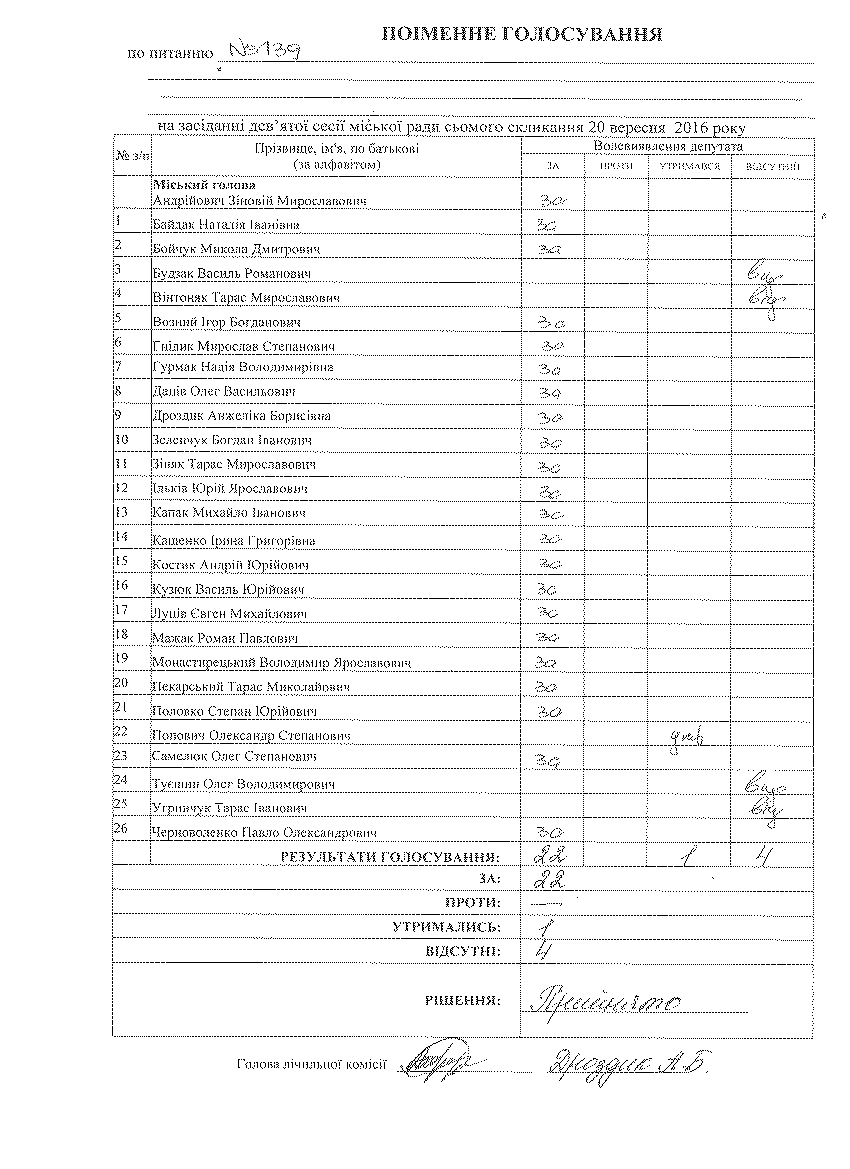 ПОІМЕННЕ ГОЛОСУВАННЯ
по питанню №139
на засіданні дев’ятої сесії міської ради сьомого скликання 20 вересня 2016 року
№ з/п Прізвище, ім'я, по батькові (за алфавітом) Волевиявлення депутата
ЗА ПРОТИ УТРИМАВСЯ ВІДСУТНІЙ
Міський голова
Андрійович Зіновій Мирославович за
1 Байдак Наталія Іванівна за
2 Бойчук Микола Дмитрович за
3 Будзак Василь Романович від
4 Вінтоняк Тарас Мирославович від
5 Возний Ігор Богданович за
6 Гнідик Мирослав Степанович за
7 Гурмак Надія Володимирівна за
8 Даців Олег Васильович за
9 Дроздик Анжеліка Борисівна за
10 Зеленчук Богдан Іванович за
11 Зіняк Тарас Мирославович за
12 Ільків Юрій Ярославович за
13 Капак Михайло Іванович за
14 Кащенко Ірина Григорівна за
15 Костик Андрій Юрійович за
16 Кузюк Василь Юрійович за
17 Луців Євген Михайлович за
18 Мажак Роман Павлович за
19 Монастирецький Володимир Ярославович за
20 Пекарський Тарас Миколайович за
21 Половко Степан Юрійович за
22 Попович Олександр Степанович
23 Самелюк Олег Степанович за
24 Туєшин Олег Володимирович від
25 Угринчук Тарас Іванович від
26 Черноволенко Павло Олександрович за
РЕЗУЛЬТАТИ ГОЛОСУВАННЯ: 22 1 4
ЗА: 22
ПРОТИ: —
УТРИМАЛИСЬ: 1
ВІДСУТНІ: 4
РІШЕННЯ: Прийнято
Голова лічильної комісії Дроздик А.Б.